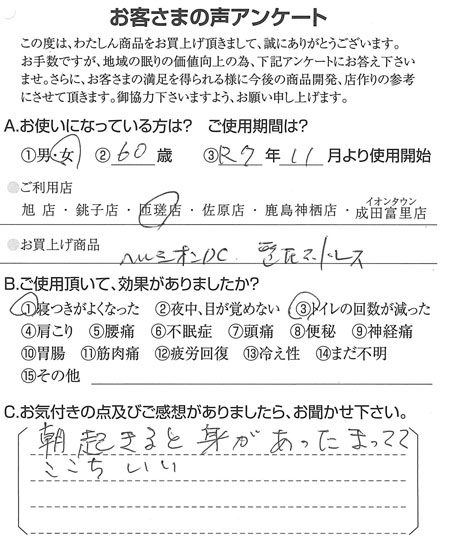 お客さまの声アンケート
この度は、わたしん商品をお買上げ頂きまして、誠にありがとうございます。
お手数ですが、地域の眠りの価値向上の為、下記アンケートにお答え下さい
ませ。さらに、お客さまの満足を得られる様に今後の商品開発、店作りの参考
にさせて頂きます。御協力下さいますよう、お願い申し上げます。
A.お使いになっている方は？ ご使用期間は？
①男・女 ②60歳 ③R7年11月より使用開始
●ご利用店
旭店・銚子店・匝瑳店・佐原店・鹿島神栖店・イオンタウン成田富里店
●お買上げ商品 ヘルシオンDC
B.ご使用頂いて、効果がありましたか？
①寝つきがよくなった ②夜中、目が覚めない ③トイレの回数が減った
④肩こり ⑤腰痛 ⑥不眠症 ⑦頭痛 ⑧便秘 ⑨神経痛
⑩胃腸 ⑪筋肉痛 ⑫疲労回復 ⑬冷え性 ⑭まだ不明
⑮その他
C.お気付きの点及びご感想がありましたら、お聞かせ下さい。
朝起きると身があったまってて
ここちいい